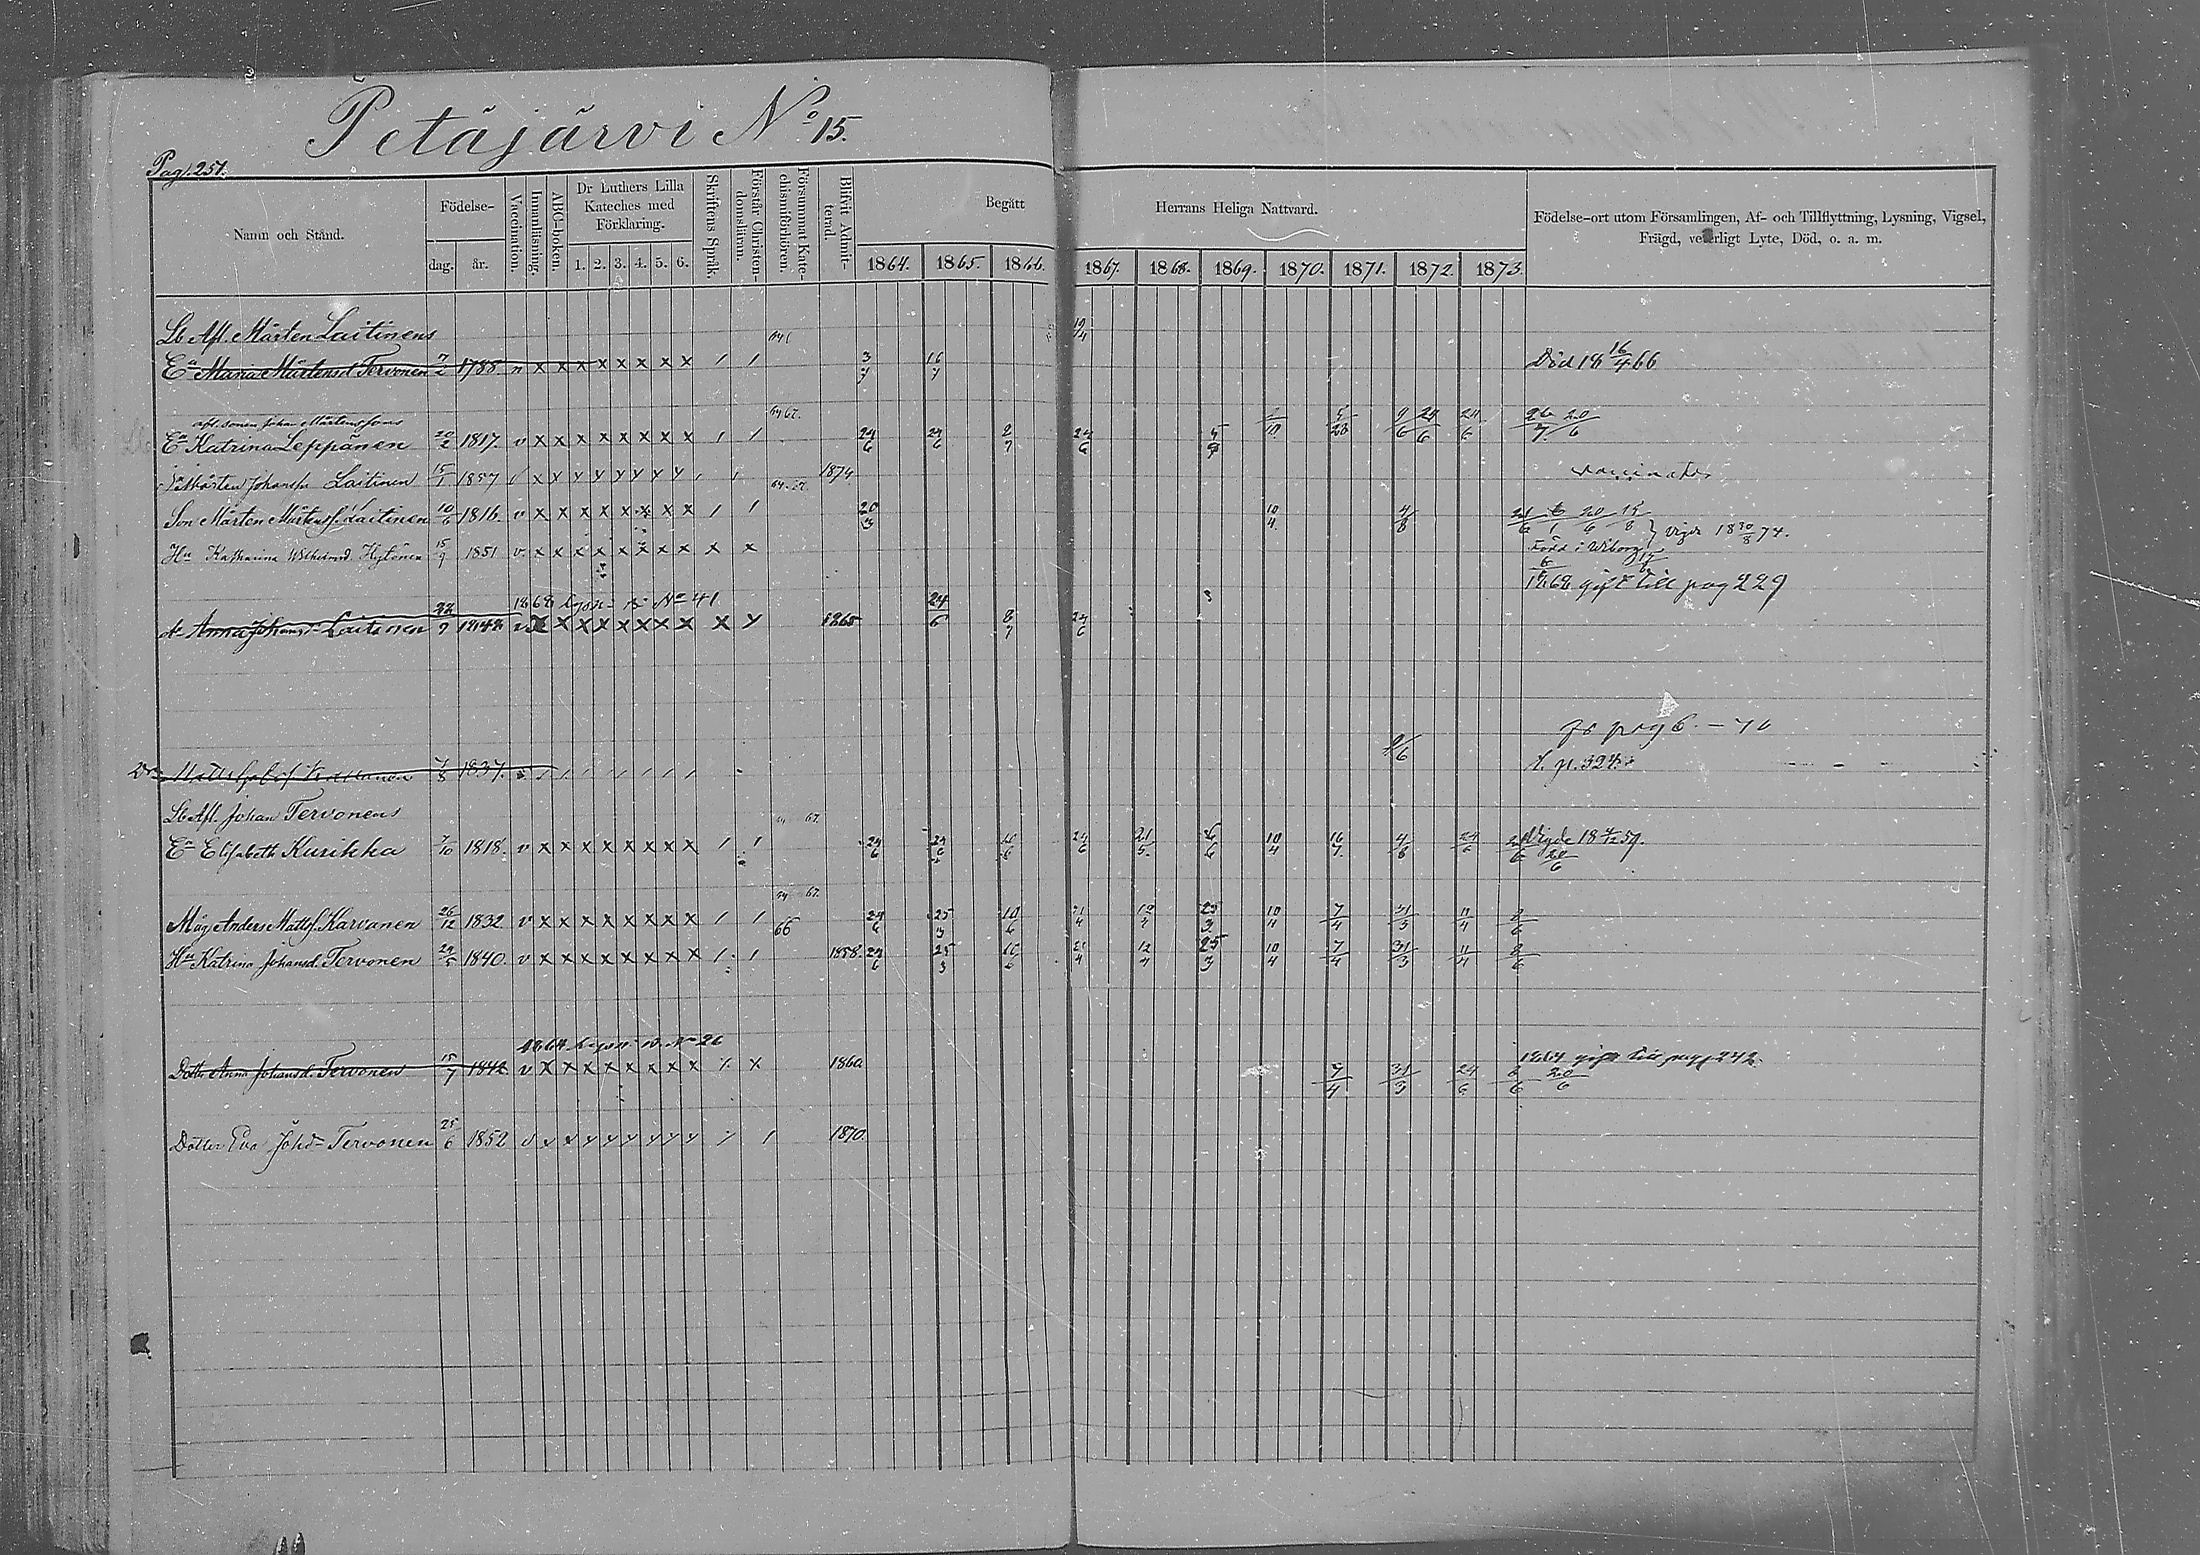 Petäjärvi No 15.
Pag. 251.
Namn och Stånd.
Födelse-
dag. år.
Vaccination.
Innanläsning.
ABC-boken.
Dr Luthers Lilla Kateches med Förklaring.
1. 2. 3. 4. 5. 6.
Skriftens Språk.
Förstår Christendomsläran.
Försummat Katechismiförhören.
Blifvit Admitterad.
Begått Herrans Heliga Nattvard.
1864. 1865. 1866. 1867. 1868. 1869. 1870. 1871. 1872. 1873.
Födelse-ort utom Församlingen, Af- och Tillflyttning, Lysning, Vigsel, Frägd, veterligt Lyte, Död, o. a. m.
Lb Afl. Mårten Laitinens 19/4
Ea Maria Mårtensd. Tervonen 7/2 1788 v x x x x x x x x 1 1 3/7 16/7 Död 18 16/4 66
afl. sonen Johan Mårtenssons 64 67.
Ea Katrina Leppänen 20/2 1817. v x x x x x x x x 1 1 24/6 24/6 2/7 24/6 9/6 24/6 24/6 20/6
Mårten Johanss. Laitinen 15/1 1857 1874
Son Mårten Mårtenss. Laitinen 10/6 1816. v x x x x x x x x 1 1 20/3 10/4. 4/8 vigde 18 30/8 74.
Hu Katharina Hytönen 15/9 1851 v x x x x x x x x x x Född i Wiborg
1868 gift till pag 229
22/9 1868 lysn. No 41
Anna Johansd. Laitinen x x x x x x x x x 1865 24/6 8/7 24/6
pag 6. – 70
1837. 2/6 p. 324.
Lb Afl. Johan Tervonens 67.
Ea Elisabeth Kurikka 7/10 1818. v x x x x x x x x 1 1 24/6 24/6 16/6 24/6 21/5. 6/6 10/4 16/7. 4/8 24/6 Vigde 18 4/12 59. 20/6
64 67.
Måg Anders Matts. Karvanen 26/12 1832 v x x x x x x x x 1 1 66 24/6 25/3 10/6 21/4 12/4 25/3 10/4 7/4 31/3 11/4 8/6
Hu Katrina Johansd. Tervonen 24/5 1840. v x x x x x x x x 1. 1 1858. 24/6 25/3 16/6 21/4 12/4 25/3 10/4 7/4 31/3 11/4 8/6
1864 lysn. No 26
Dottr Anna Johansd. Tervonen 15/7 1842 v x x x x x x x x x x 1860. 7/4 31/3 24/6 8/6 20/6 1864 gift till pag 242.
Dotter Eva Johd. Tervonen 25/6 1852 1870.